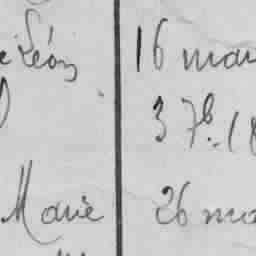 e Léon 16 mar
3 7b. 18
Marie 26 ma